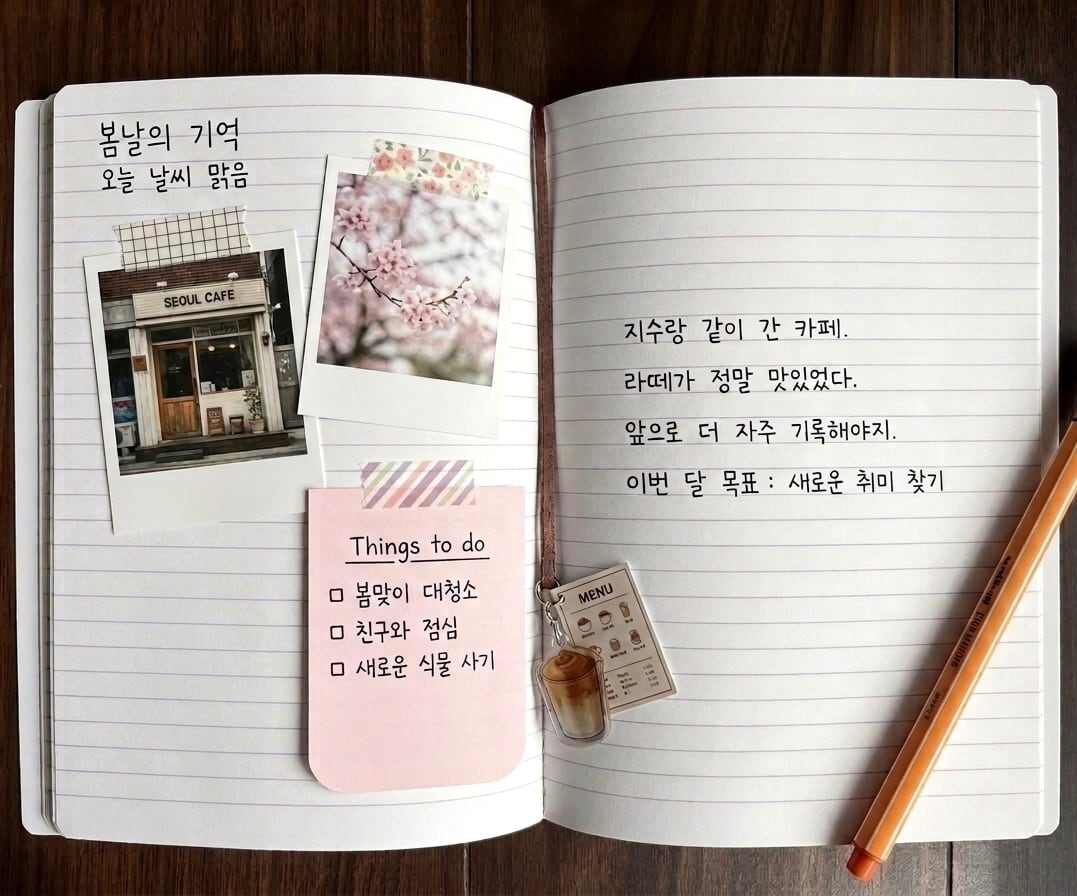 봄날의 기억
오늘 날씨 맑음
SEOUL CAFE
Things to do
□ 봄맞이 대청소
□ 친구와 점심
□ 새로운 식물 사기
지수랑 같이 간 카페.
라떼가 정말 맛있었다.
앞으로 더 자주 기록해야지.
이번 달 목표 : 새로운 취미 찾기
MENU